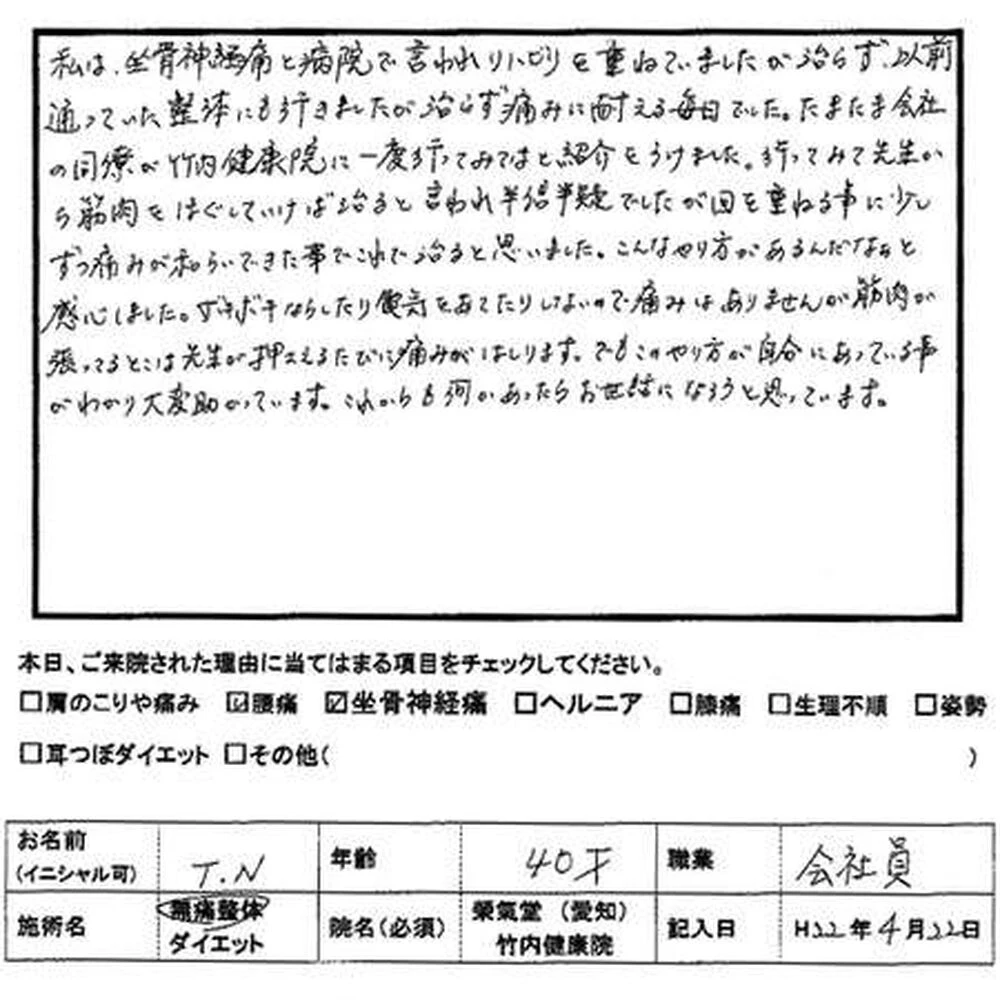 私は、坐骨神経痛と病院で言われリハビリを重ねていましたが治らず、以前
通っていた整体にも行きましたが治らず痛みに耐える毎日でした。たまたま会社
の同僚が竹内健康院に一度行ってみてはと紹介をうけました。行ってみて先生か
ら筋肉をほぐしていけば治ると言われ半信半疑でしたが回を重ねる事に少し
ずつ痛みが和らいできた事でこれで治ると思いました。こんなやり方があるんだなぁと
感心しました。ボキボキならしたり電気をあてたりしないので痛みはありませんが筋肉が
張ってるとこは先生が押さえるたびに痛みがはしります。でもこのやり方が自分にあっている事
がわかり大変助かっています。これからも何かあったらお世話になろうと思っています。
本日、ご来院された理由に当てはまる項目をチェックしてください。
□肩のこりや痛み ☑腰痛 ☑坐骨神経痛 □ヘルニア □膝痛 □生理不順 □姿勢
□耳つぼダイエット □その他( )
お名前 (イニシャル可) T.N 年齢 40才 職業 会社員
施術名 無痛整体 ダイエット 院名(必須) 榮氣堂 (愛知) 竹内健康院 記入日 H22年4月22日